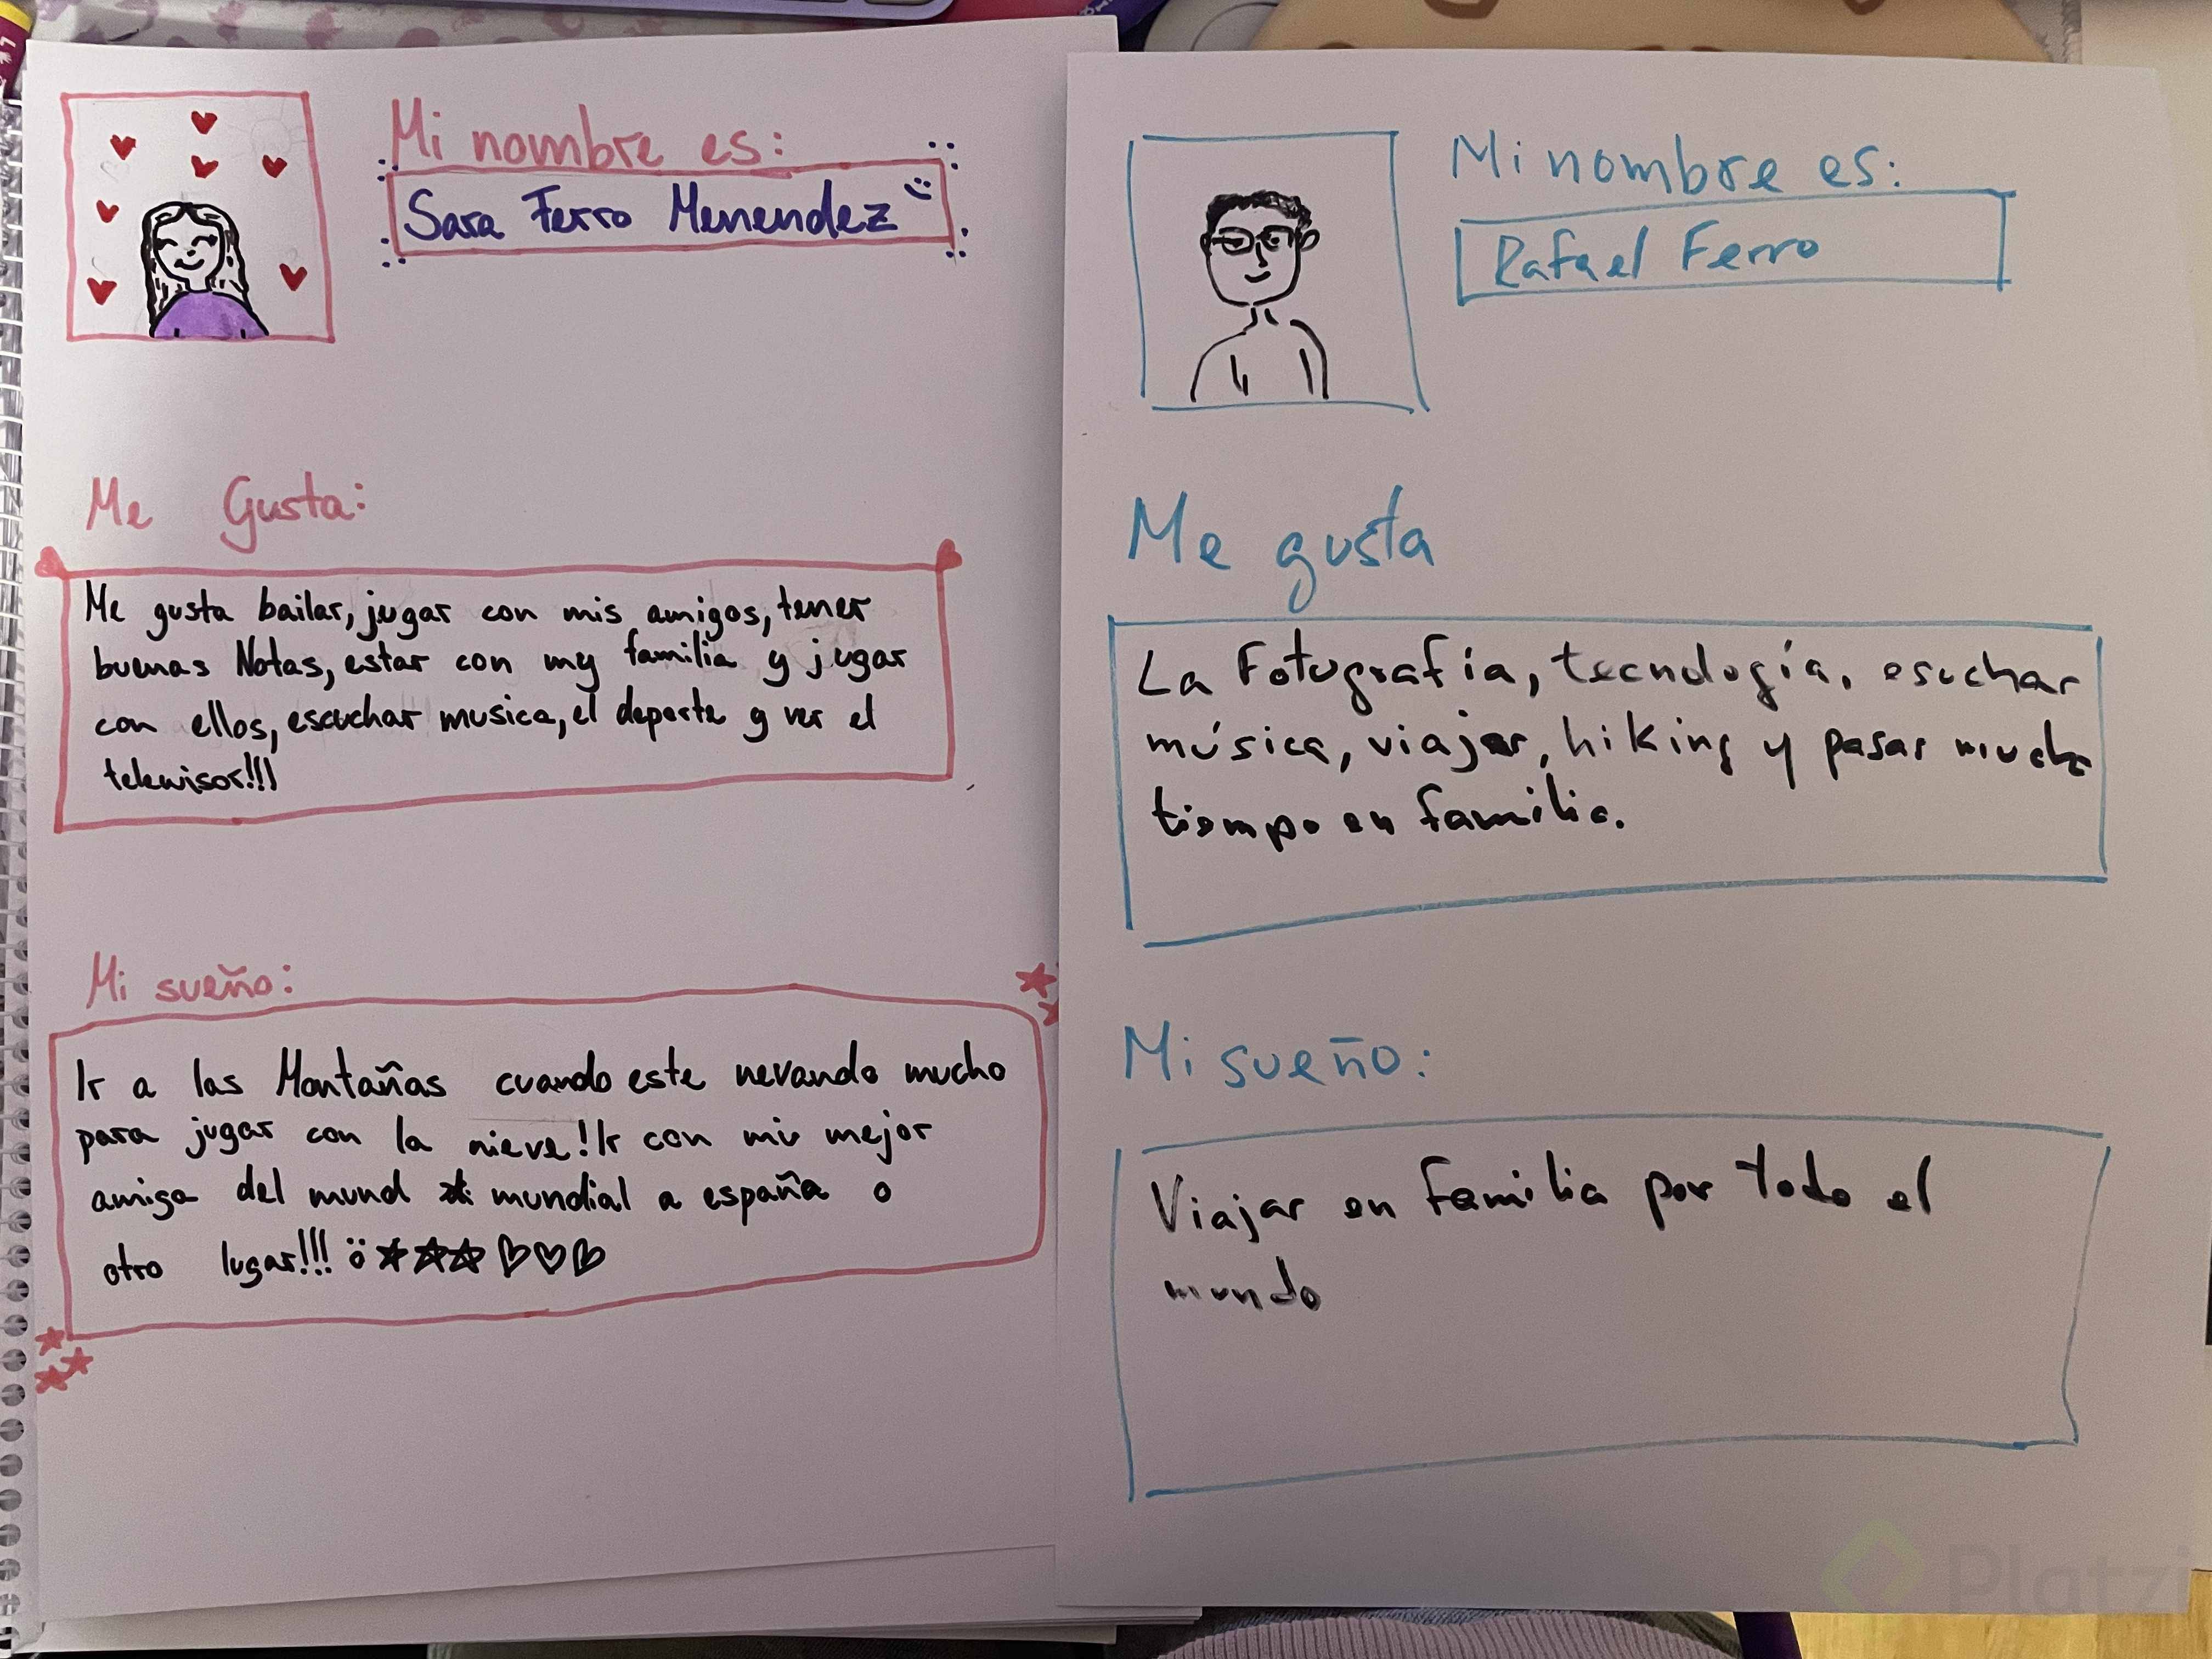 Mi nombre es:
Sara Ferro Menendez
Me Gusta:
Me gusta bailar, jugar con mis amigos, tener
buenas Notas, estar con my familia y jugar
con ellos, escuchar musica, el deporte y ver el
telewisor!!!
Mi sueño:
Ir a las Montañas cuando este nevando mucho
para jugar con la nieve! Ir con miv mejor
amiga del mund mundial a españa o
otro lugar!!!
Mi nombre es:
Rafael Ferro
Me gusta
La Fotografía, tecnología, escuchar
música, viajar, hiking y pasar mucho
tiempo en familia.
Mi sueño:
Viajar en familia por todo el
mundo
Platzi